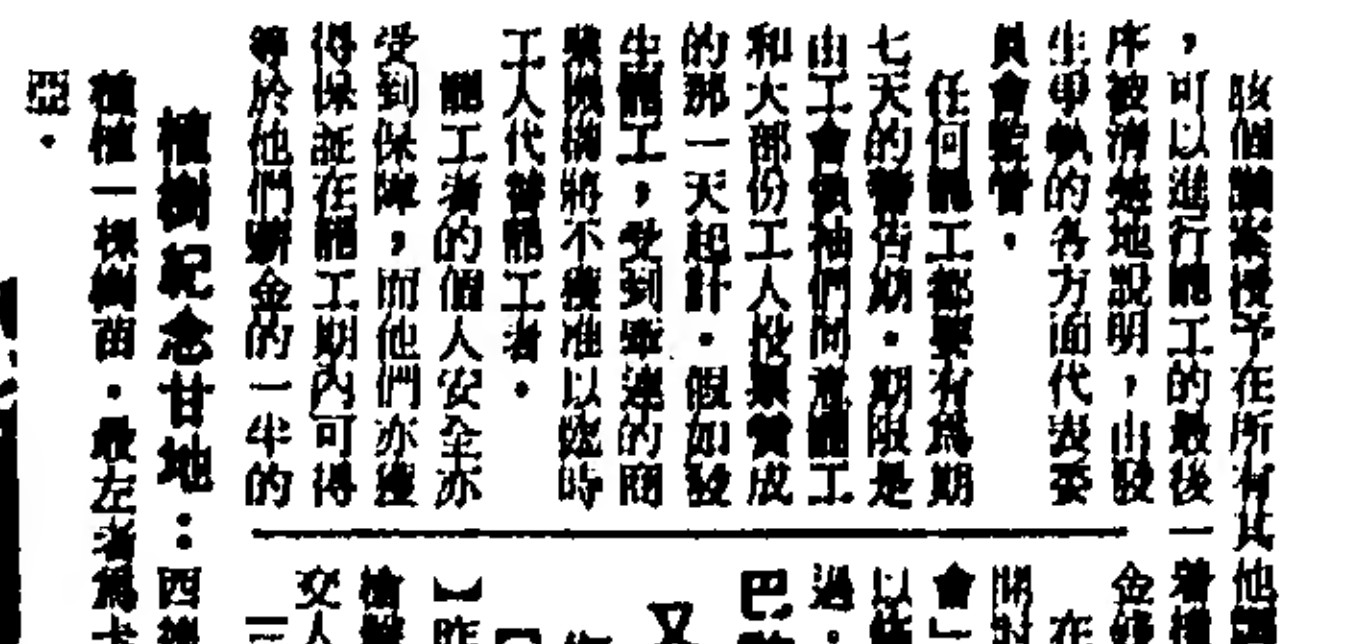 該個議案授予在所有其他
，可以進行罷工的最後一着
序被清楚地說明，由發
生爭執的各方面代表委
員會監管。
任何罷工都要有爲期
七天的警告期。期限是
由工會領袖們同意罷工
和大部份工人投票贊成
的那一天起計。假如發
生罷工，受到牽連的商
業機構將不獲准以臨時
工人代替罷工者。
罷工者的個人安全亦
受到保障，而他們亦獲
得保証在罷工期內可得
等於他們薪金的一半的
植樹紀念甘地：西
種植一棵樹苗。最左者爲
亞。
金
在
會」
以
過。
巴
又
】昨
槍
交人
三